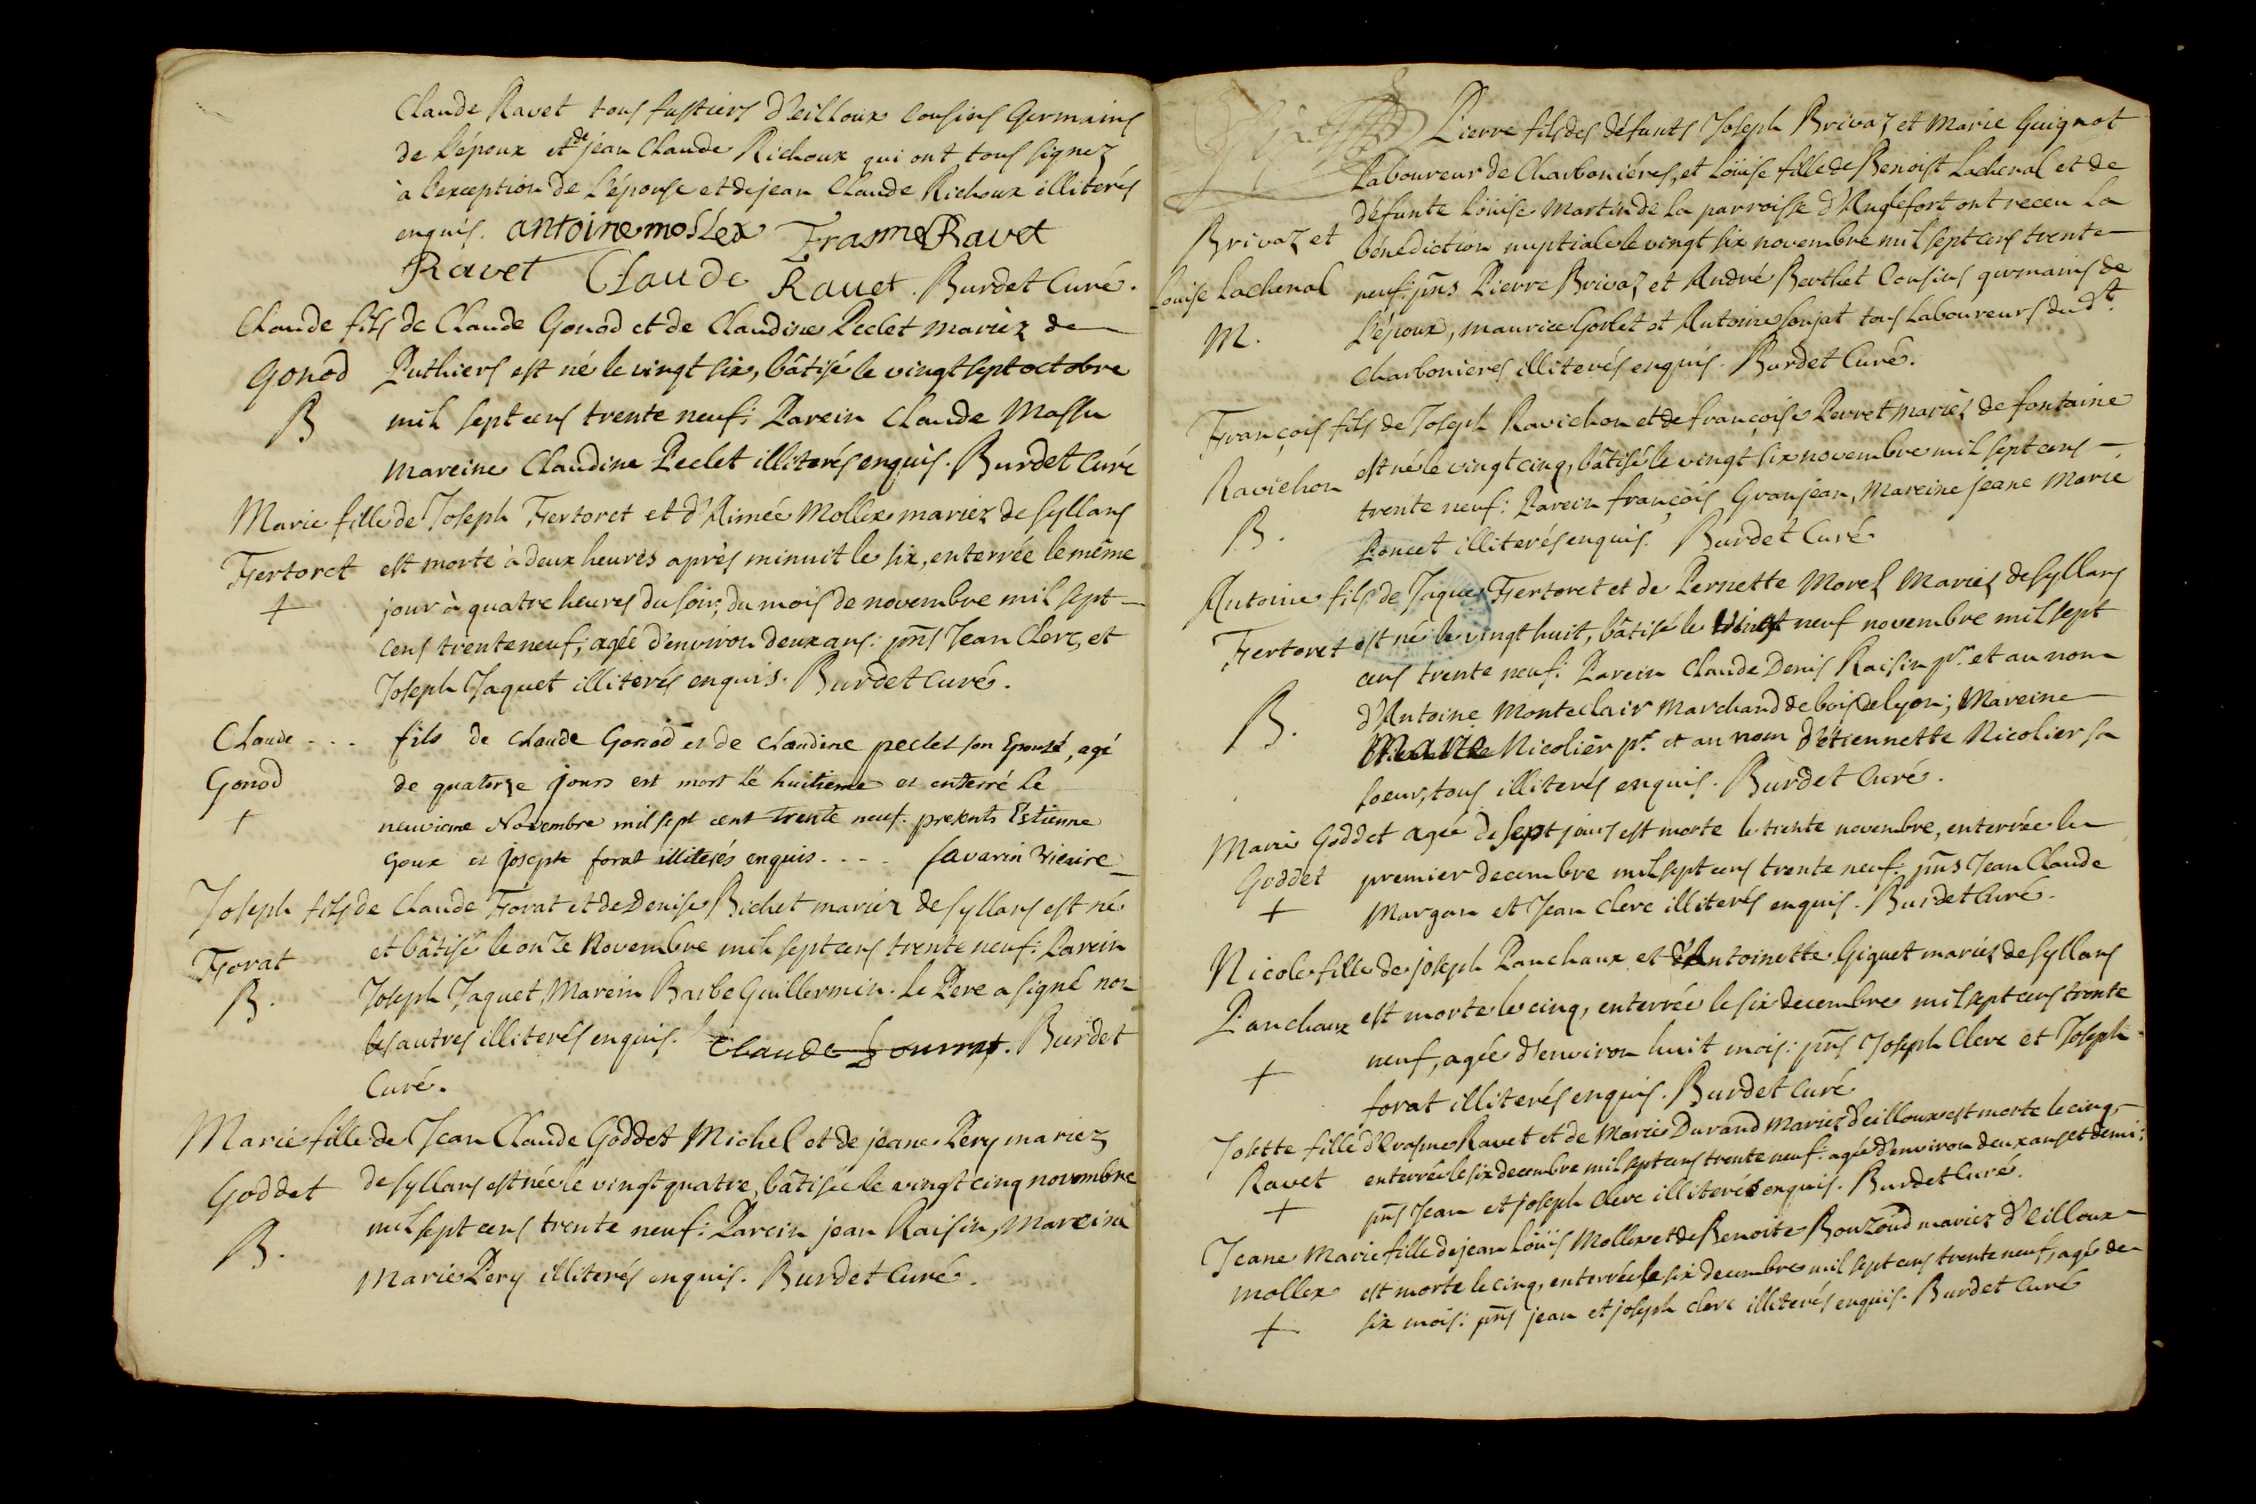 Claude Ravet tous fustiers d'eilloux Cousins Germains
de L'époux et de jean Claude Richoux qui ont tous signez
à l'exception de L'épouse et de jean Claude Richoux illiterés
enquis. antoine mollex Erasme Ravet
Ravet Claude Ravet. Burdet Curé.
Claude fils de Claude Gonod et de Claudine Peclet mariez de
Gonod Puthiers est né le vingt six, bâtisé le vingt sept octobre
B mil sept cens trente neuf: Parein Claude Massu
Mareine Claudine Peclet illiterés enquis. Burdet Curé
Marie fille de Joseph Fertoret et d'Aimée Mollex mariez de Syllans
Fertoret est morte à deux heures après minuit le six, enterrée le même
+ jour à quatre heures du soir, du mois de novembre mil sept
cens trente neuf, agée d'environ deux ans: pns Jean Clerc, et
Joseph Jaquet illiterés enquis. Burdet Curé.
Claude - - - fils de Claude Gonod et de Claudine peclet son Epouse, agé
Gonod de quatorze jours est mort le huitieme et enterré le
+ neuvieme Novembre mil sept cent trente neuf. presents Estienne
Goux et joseph forat illiterés enquis. - - - Savarin Vicaire
Joseph fils de Claude Forat et de Denise Bichet mariez de Syllans est né
Forat et bâtisé le onze Novembre mil sept cens trente neuf: Parein
B. Joseph Jaquet, Marein Barbe Guillermin. Le Pere a signé non
les autres illiterés enquis. Claude fourrat. Burdet
Curé.
Marie fille de Jean Claude Goddet Michel et de jeane Pery mariez
Goddet de Syllans est née le vingt quatre, bâtisée le vingt cinq novembre
B. mil sept cens trente neuf: Parein jean Raisin, Mareine
Marie Pery illiterés enquis. Burdet Curé.
Pierre fils des défunts Joseph Brivaz et Marie Guignot
Laboureur de Charbonières, et Loüise fille de Benoist Lachenal et de
défunte Loüise Martin de la parroisse d'Anglefort ont receu la
Brivaz et bénédiction nuptiale le vingt six novembre mil sept cens trente
Louise Lachenal neuf: pns Pierre Brivaz et André Berthet Cousins germains de
M. L'époux, maurice Goddet et Antoine Soujat tous Laboureurs dudt.
Charbonieres illiterés enquis. Burdet Curé.
François fils de Joseph Ravichon et de françoise Perret mariez de fontaine
Ravichon est né le vingt cinq, bâtisé le vingt six novembre mil sept cens
B. trente neuf: Parein françois Granjean, Mareine jeane Marie
Poncet illiterés enquis. Burdet Curé
Antoine fils de Jaque Fertoret et de Pernette Morel Mariez de Syllans
Fertoret est né le vingt huit, bâtisé le vingt neuf novembre mil sept
cens trente neuf: Parein Claude Denis Raisin pr. et au nom
B. d'Antoine Monteclair Marchand de bois de lyon; Mareine
Marie Nicolier pr. et au nom d'étiennette Nicolier sa
soeur, tous illiterés enquis. Burdet Curé.
Marie Goddet agée de sept jours est morte le trente novembre, enterrée le
Goddet premier decembre mil sept cens trente neuf: pns Jean Claude
+ Margan et Jean Clerc illiterés enquis. Burdet Curé.
Nicole fille de joseph Panchaux et d'Antoinette Giguet mariez de Syllans
Panchaux est morte le cinq, enterrée le six decembre mil sept cens trente
+ neuf, agée d'environ huit mois: pns Joseph Clerc et Joseph
forat illiterés enquis. Burdet Curé
Josette fille d'Erasme Ravet et de Marie Durand Mariez d'eilloux est morte le cinq,
Ravet enterrée le six decembre mil sept cens trente neuf: agée d'environ deux ans et demi:
+ pns Jean et joseph Clerc illiterés enquis. Burdet Curé.
Jeane Marie fille de jean Loüis Mollex et de Benoite Bouzoud mariez d'eilloux
mollex est morte le cinq, enterrée le six decembre mil sept cens trente neuf, agée de
+ six mois: pns jean et joseph clerc illiterés enquis. Burdet Curé